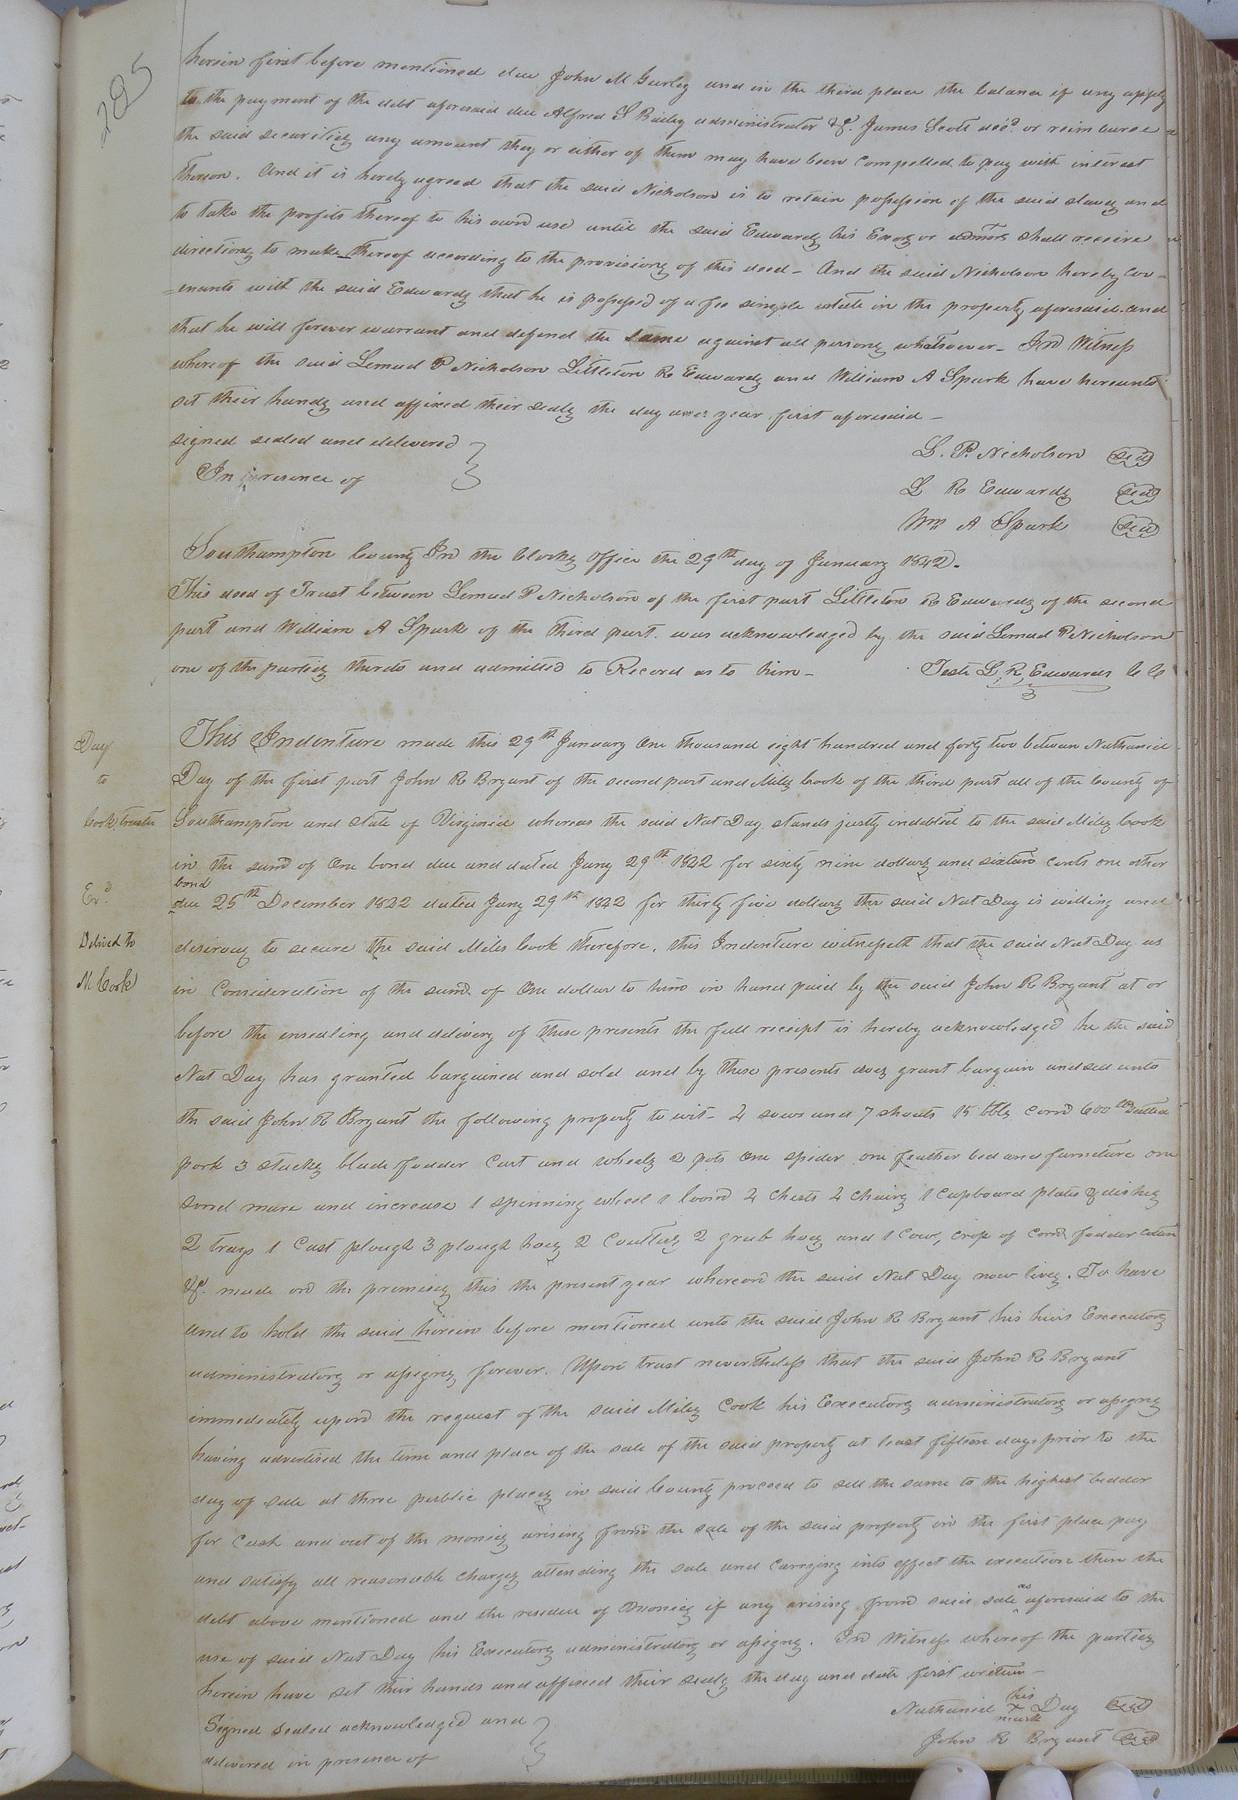 285
herein first before mentioned due John M Gurley and in the third place the balance if any apply
to the payment of the debt aforesaid due Alfred S Bailey administrator &c. James Scott decd or reimburse
the said securities any amount they or either of them may have been compelled to pay with interest
thereon. And it is hereby agreed that the said Nicholson is to retain possession of the said slaves and
to take the profits thereof to his own use until the said Edwards his Exors or admors shall receive
directions to make thereof according to the provisions of this deed - And the said Nicholson hereby cov-
=enants with the said Edwards that he is possessed of a fee simple estate in the property aforesaid and
that he will forever warrant and defend the same against all persons whatsoever - In Witness
whereof the said Lemuel P Nicholson Littleton R Edwards and William A Spark have hereunto
set their hands and affixed their seals the day and year first aforesaid -
signed sealed and delivered
In presence of
L. P. Nicholson Seal
L R Edwards Seal
Wm A Spark Seal
Southampton County In the Clerks Office the 29th day of January 1842.
This deed of Trust between Lemuel P Nicholson of the first part Littleton R Edwards of the second
part and William A Spark of the third part was acknowledged by the said Lemuel P Nicholson
one of the parties thereto and admitted to Record as to him -
Teste L. R. Edwards CC
Day
to
Cook trustee
Exd
Delivd to
M Cook
This Indenture made this 29th January One thousand eight hundred and forty two between Nathaniel
Day of the first part John R Bryant of the second part and Miles Cook of the third part all of the County of
Southampton and state of Virginia whereas the said Nat Day stands justly indebted to the said Miles Cook
in the sum of One bond due and dated Jany 29th 1842 for sixty nine dollars and sixteen cents one other
bond
due 25th December 1842 dated Jany 29th 1842 for thirty five dollars the said Nat Day is willing and
desirous to secure the said Miles Cook therefore, this Indenture witnesseth that the said Nat Day as
in Consideration of the sum of One dollar to him in hand paid by the said John R Bryant at or
before the ensealing and delivery of these presents the full receipt is hereby acknowledged he the said
Nat Day has granted bargained and sold and by these presents does grant bargain and sell unto
the said John R Bryant the following property to wit - 4 sows and 7 shoats 15 bbls corn 600 lbs salted
pork 3 stacks blade fodder Cart and wheels 2 pots One spider one feather bed and furniture one
sorrel mare and increase 1 spinning wheel 1 loom 2 Chests 4 chairs 1 Cupboard plates & dishes
2 trays 1 Cast plough 3 plough hoes 2 Coulters 2 grub hoes and 1 Cow, crop of Corn fodder cotton
&c. made on the premises this the present year whereon the said Nat Day now lives. To have
and to hold the said herein before mentioned unto the said John R Bryant his heirs Executors
administrators or assigns forever. Upon trust nevertheless that the said John R Bryant
immediately upon the request of the said Miles Cook his Executors administrators or assigns
having advertised the time and place of the sale of the said property at least fifteen days prior to the
day of sale at three public places in said County proceed to sell the same to the highest bidder
for Cash and out of the monies arising from the sale of the said property in the first place pay
and satisfy all reasonable charges attending the sale and carrying into effect the execution then the
debt above mentioned and the residue of Monies if any arising from said sale as aforesaid to the
use of said Nat Day his Executors administrators or assigns. In Witness whereof the parties
herein have set their hands and affixed their seals the day and date first written -
Signed sealed acknowledged and
delivered in presence of
Nathaniel his x mark Day Seal
John R Bryant Seal